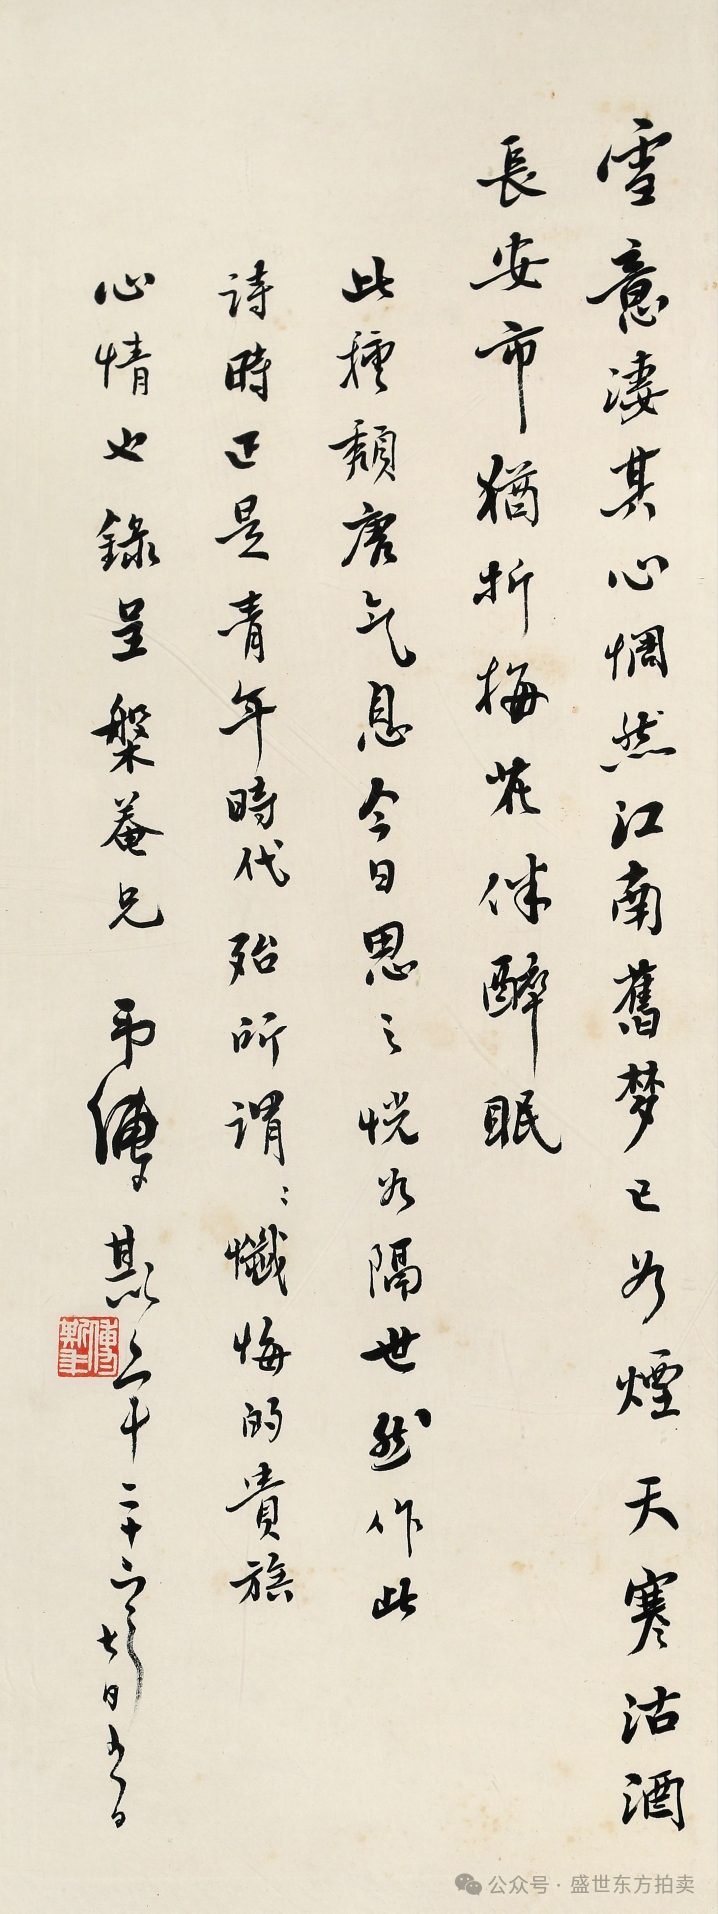 雪意凄其心惘然江南舊梦已如煙天寒沽酒
長安市猶折梅花伴醉眠
此種頹唐气息今日思之恍如隔世然作此
詩時正是青年時代殆所謂懺悔的貴族
心情也錄呈槃菴兄 弟傅斯年 二十六年七月
傅斯年
公众号·盛世东方拍卖